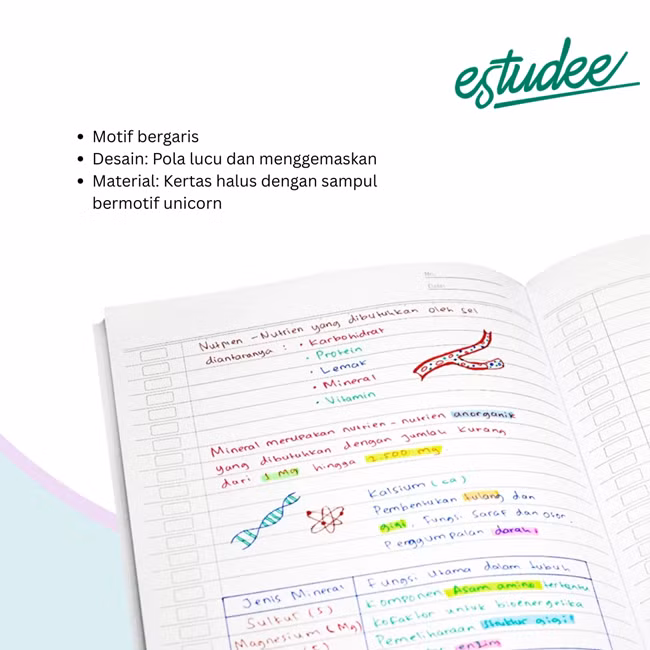 estudee
• Motif bergaris
• Desain: Pola lucu dan menggemaskan
• Material: Kertas halus dengan sampul
bermotif unicorn
No.
Date
Nutrien - Nutrien yang dibutuhkan oleh sel
diantaranya : • Karbohidrat
• Protein
• Lemak
• Mineral
• Vitamin
Mineral merupakan nutrien - nutrien anorganik
yang dibutuhkan dengan jumlah kurang
dari 1 mg hingga 2.500 mg
Kalsium (Ca)
Pembentukan tulang dan
gigi, fungsi saraf dan otot,
Penggumpalan darah
Jenis Mineral Fungsi Utama dalam tubuh
Sulfut (S) Komponen Asam amino
Magnesium (Mg) Kofaktor untuk bioenergetika
Pemeliharaan struktur gigi
enzim